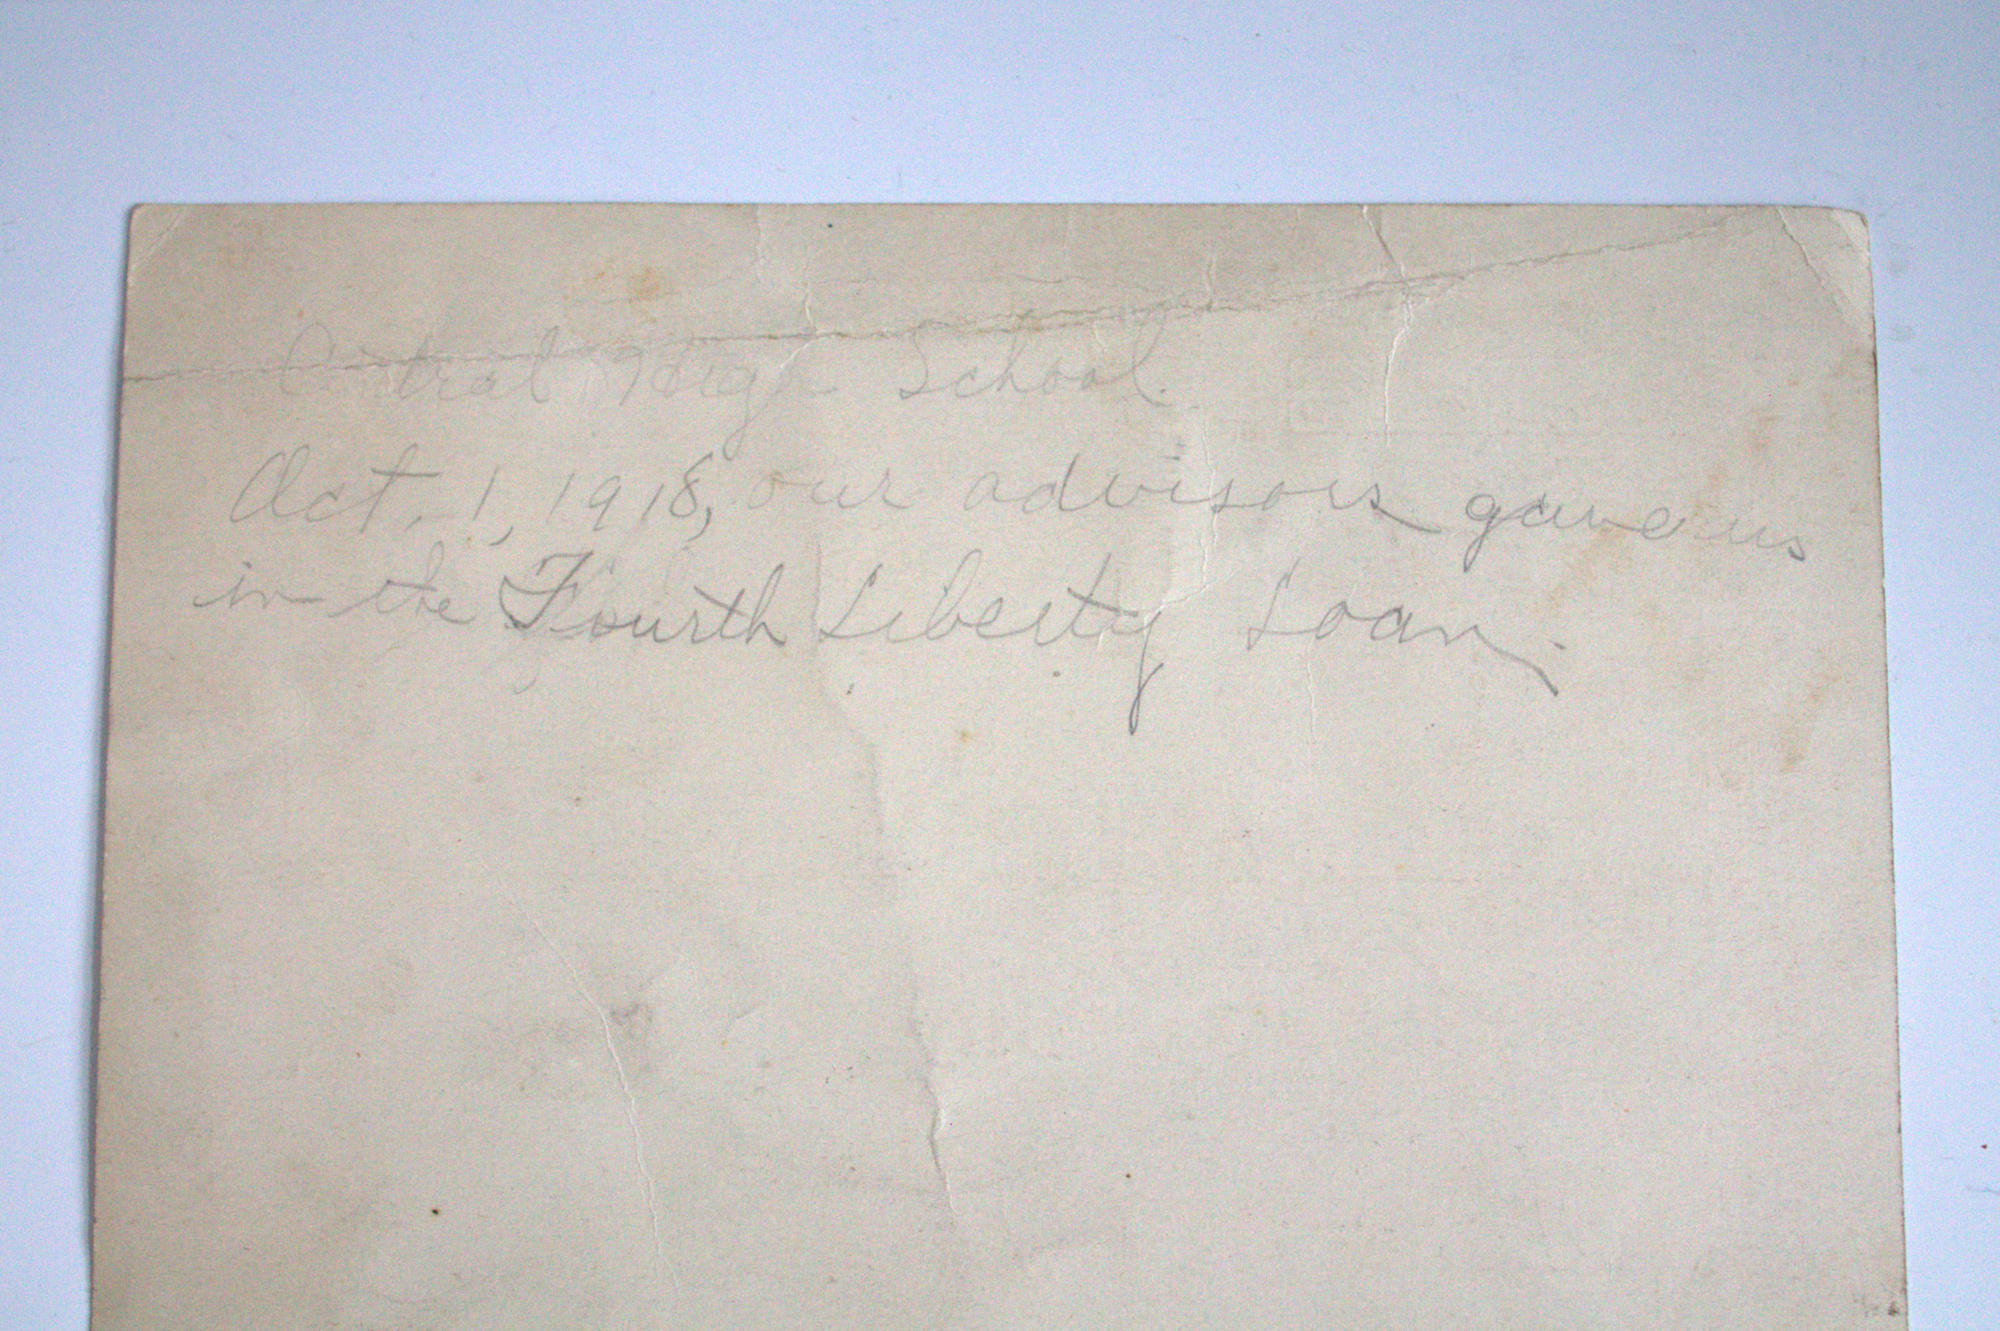 Central High School.
Oct. 1, 1918, our advisors gave us
in the Fourth Liberty Loan.